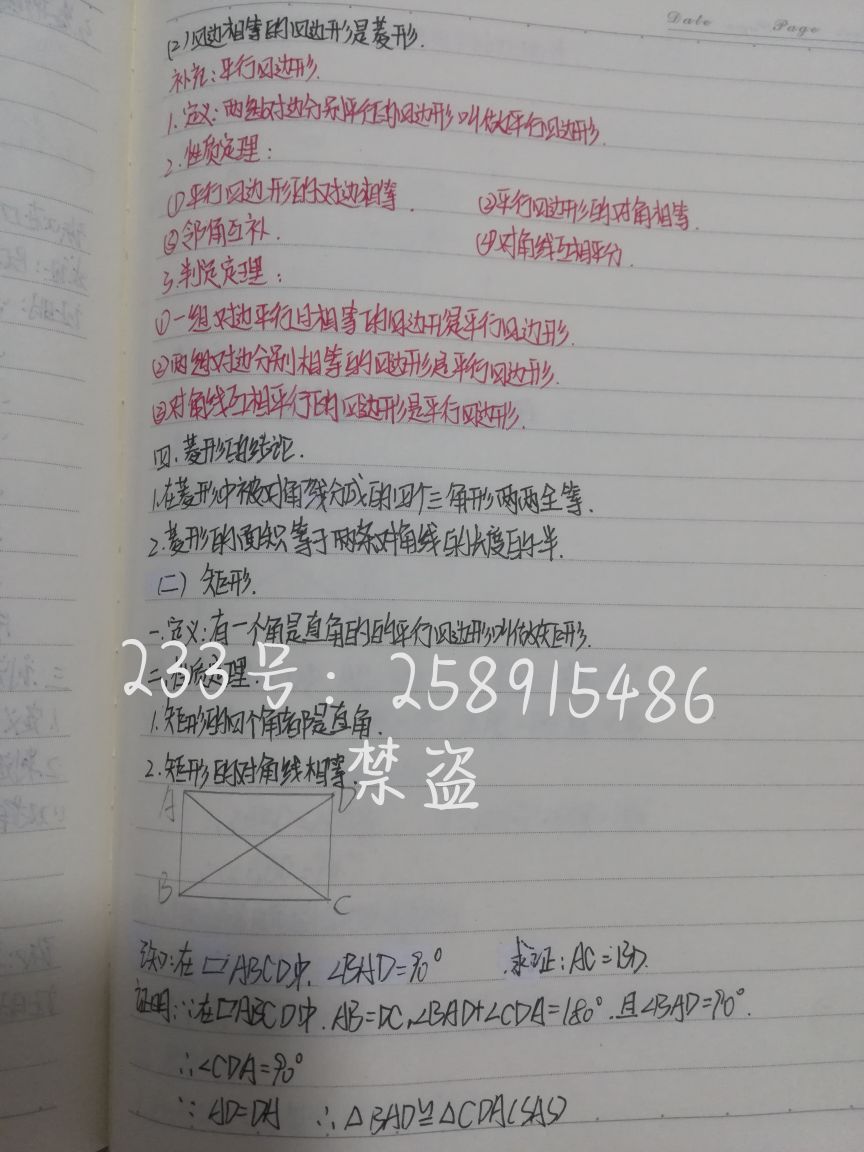 Date Page
(2)四边相等的四边形是菱形.
补充:平行四边形.
1.定义:两组对边分别平行的四边形叫做平行四边形.
2.性质定理:
①平行四边形的对边相等. ②平行四边形的对角相等.
③邻角互补. ④对角线互相平分.
3.判定定理:
①一组对边平行且相等的四边形是平行四边形.
②两组对边分别相等的四边形是平行四边形.
③对角线互相平行的四边形是平行四边形.
四.菱形的结论.
1.在菱形中被对角线分成的四个三角形两两全等.
2.菱形的面积等于两条对角线的长度的一半.
(二) 矩形.
一.定义:有一个角是直角的的平行四边形叫做矩形.
二.性质定理.
233号：258915486
1.矩形的四个角都是直角.
2.矩形的对角线相等.
禁盗
A D
B C
已知:在▱ABCD中,∠BAD=90° 求证:AC=BD.
证明:∵在▱ABCD中.AB=DC,∠BAD+∠CDA=180°.且∠BAD=90°.
∴∠CDA=90°
∵AD=DA ∴△BAD≌△CDA(SAS)